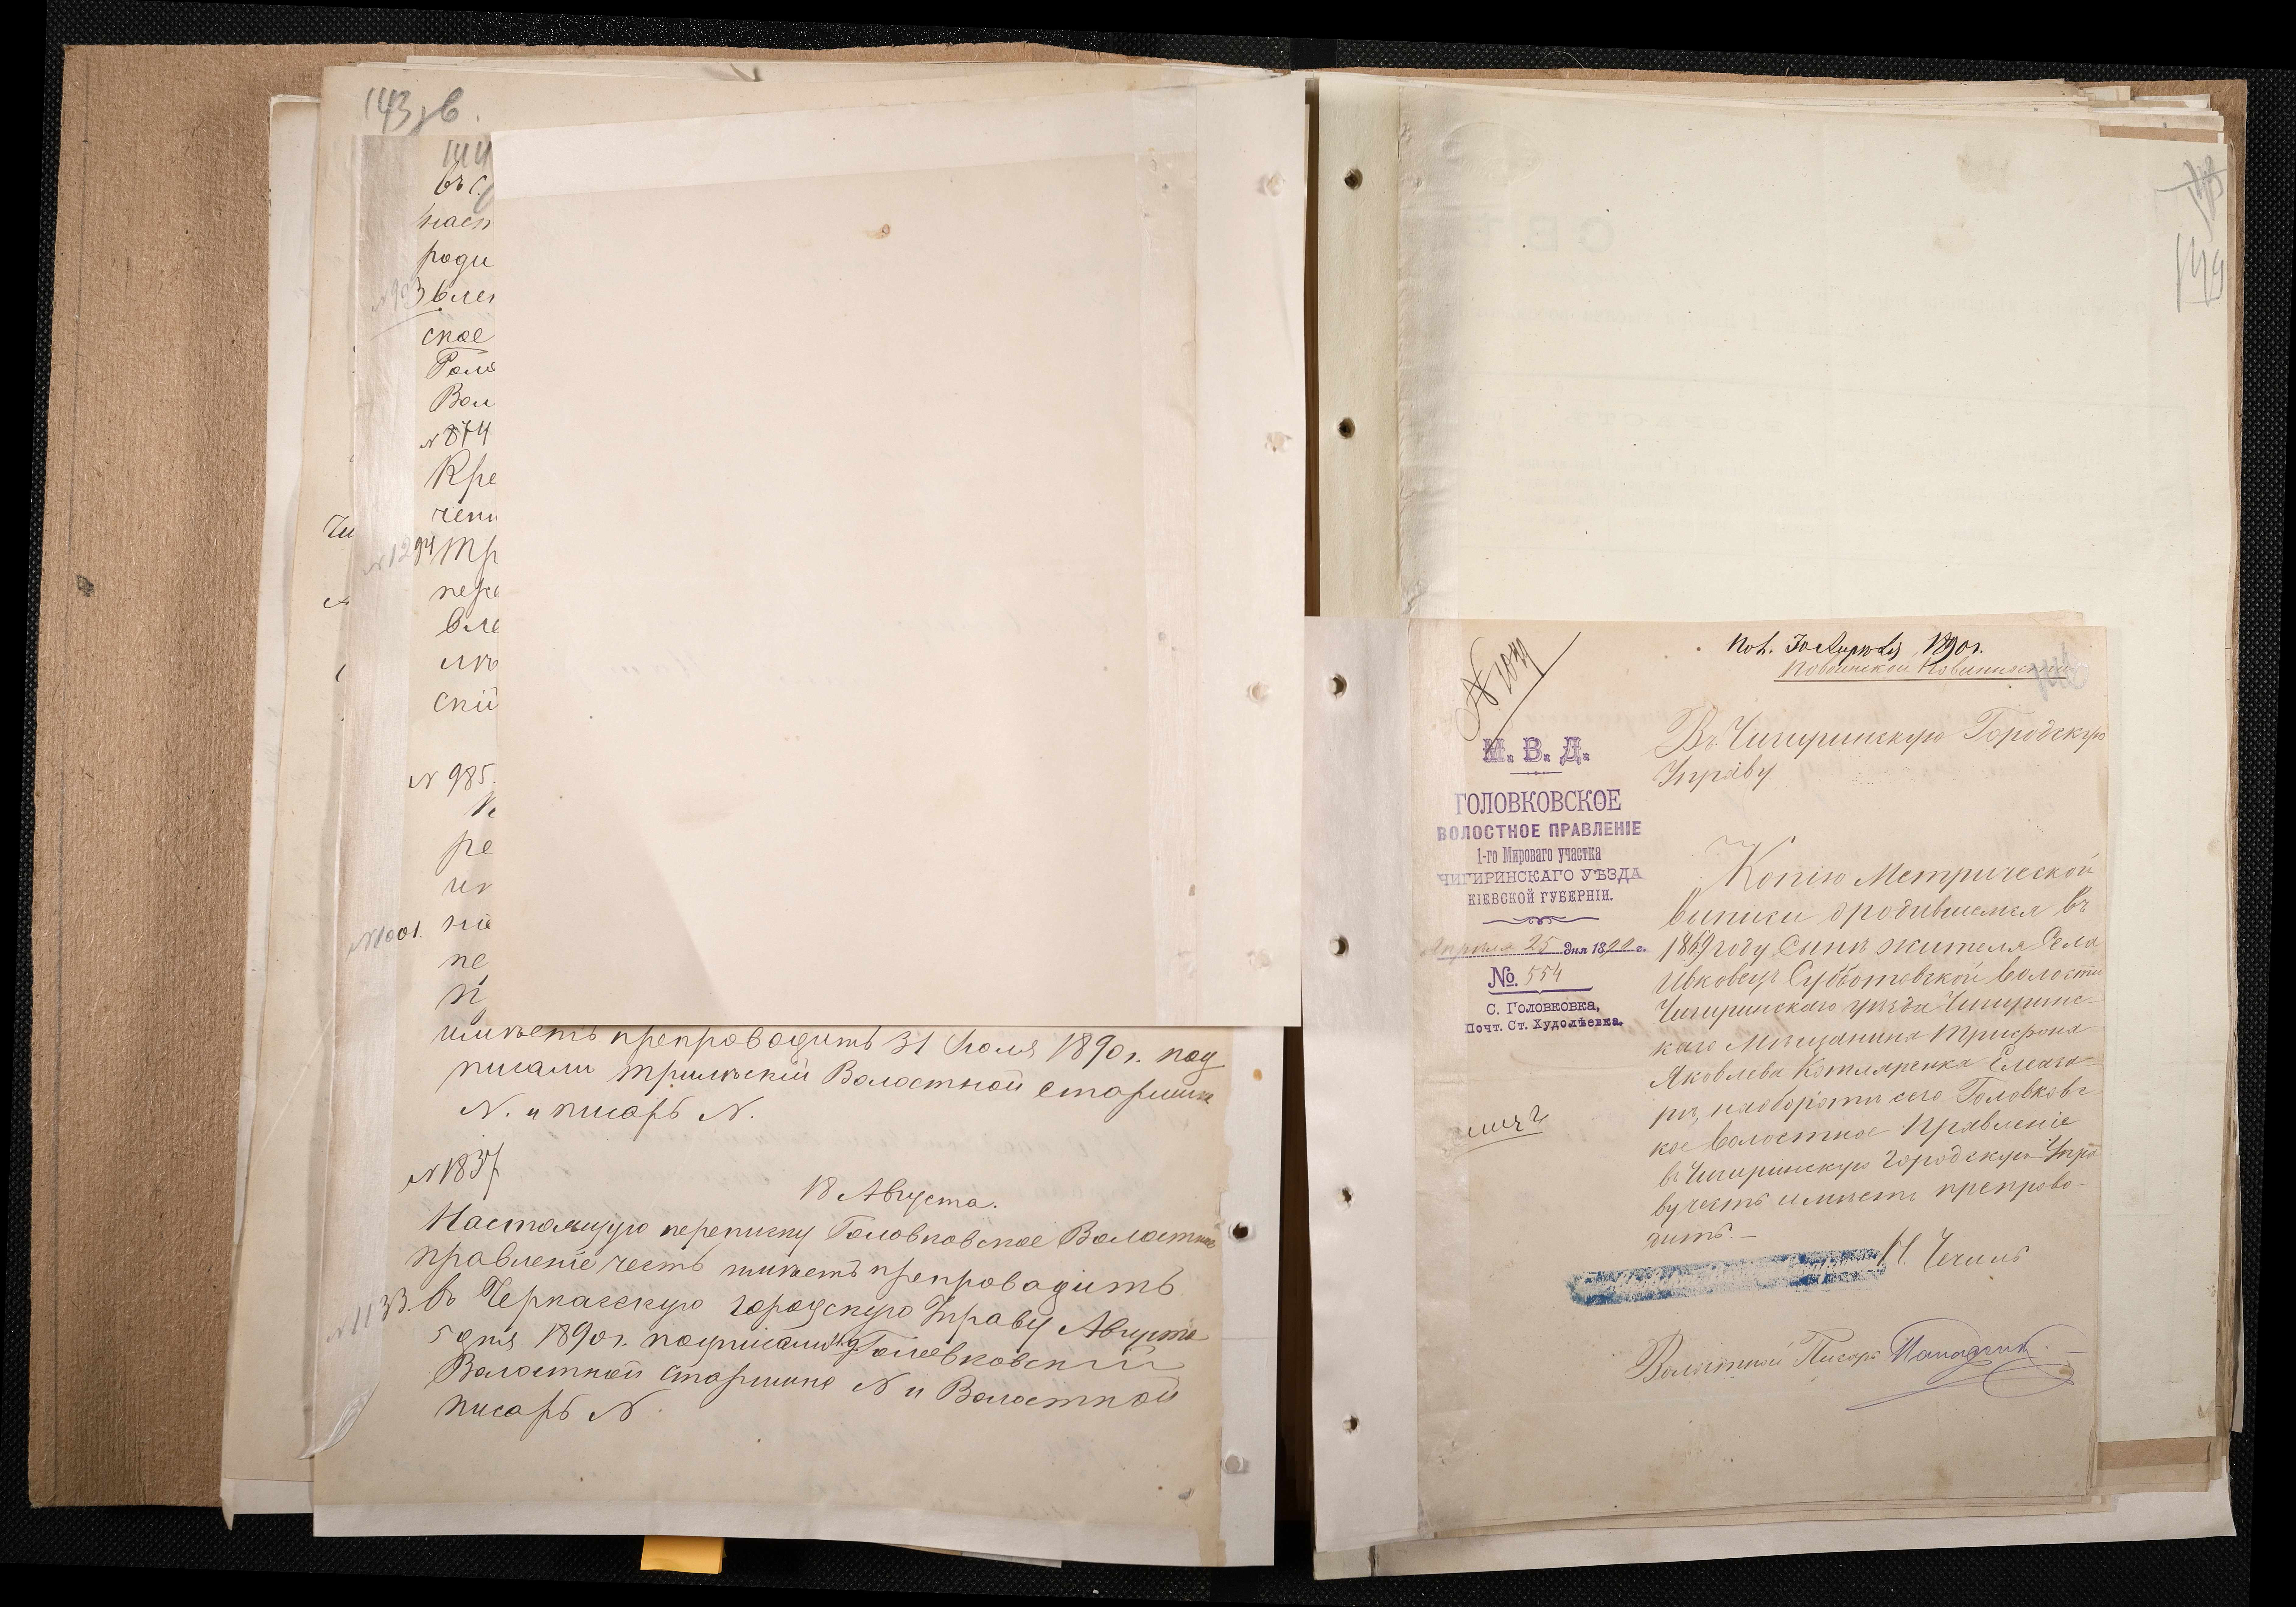 143 зв.
144
въ С
наст
роди
N 923 влен
ское
Голо
Вол
N 874
Кре
чени
N 1294 Тр
пере
вле
мъ
скій
N 985.
ре
N 1001. ніе
пе
имѣетъ препроводить 31 Іюля 1890 г. под
писали Трилѣскій Волостной Старшина
N. и писарь N.
N 1837
18 Августа.
Настоящую переписку Головковское Волостное
правленіе честь имѣетъ препроводить
N 1133. въ Черкасскую городскую Управу Августа
5 дня 1890 г. подписали Головковскій
Волостной Старшина N и Волостной
писарь N
144
Пол. 30 Апрѣля 1890 г.
М. В. Д.
ГОЛОВКОВСКОЕ
ВОЛОСТНОЕ ПРАВЛЕНІЕ
1-го Мироваго участка
ЧИГИРИНСКАГО УѢЗДА
КІЕВСКОЙ ГУБЕРНІИ.
Апрѣля 25 дня 1890 г.
№ 554
С. Головковка,
Почт. Ст. Худолѣевка.
Въ Чигиринскую Городскую
Управу
Копію Метрической
Виписи о родившемся въ
1869 году Синѣ жителя Села
Ивковецъ Субботовской волости
Чигиринскаго уѣзда Чигиринс-
каго Мѣщанина Трифона
Яковлева Котляренка Елеаза-
рѣ, наоборотѣ сего Головковс-
кое Волостное Правленіе
въ Чигиринскую Городскую Упра
ву честь имѣетъ препрово-
дить. —
Волостной Писарь